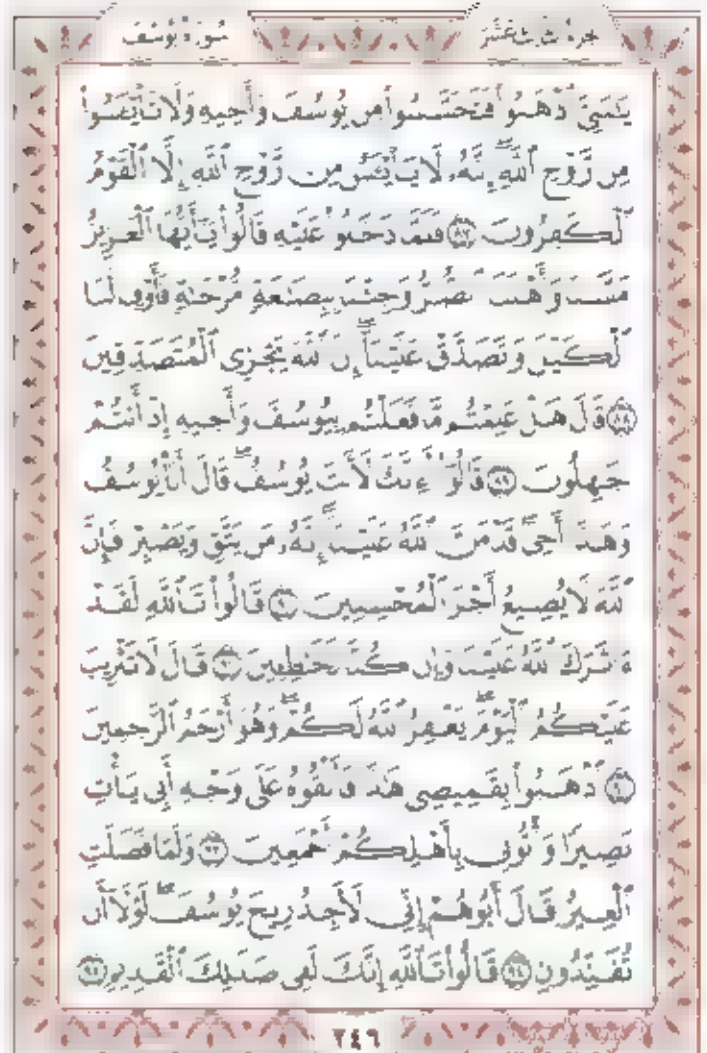 سورة يوسف
الجزء الثالث عشر
يَٰبَنِىَّ ٱذْهَبُوا۟ فَتَحَسَّسُوا۟ مِن يُوسُفَ وَأَخِيهِ وَلَا تَا۟يْـَٔسُوا۟
مِن رَّوْحِ ٱللَّهِ إِنَّهُۥ لَا يَا۟يْـَٔسُ مِن رَّوْحِ ٱللَّهِ إِلَّا ٱلْقَوْمُ
ٱلْكَٰفِرُونَ ٨٧ فَلَمَّا دَخَلُوا۟ عَلَيْهِ قَالُوا۟ يَٰٓأَيُّهَا ٱلْعَزِيزُ
مَسَّنَا وَأَهْلَنَا ٱلضُّرُّ وَجِئْنَا بِبِضَٰعَةٍ مُّزْجَىٰةٍ فَأَوْفِ لَنَا
ٱلْكَيْلَ وَتَصَدَّقْ عَلَيْنَآ إِنَّ ٱللَّهَ يَجْزِى ٱلْمُتَصَدِّقِينَ
٨٨ قَالَ هَلْ عَلِمْتُم مَّا فَعَلْتُم بِيُوسُفَ وَأَخِيهِ إِذْ أَنتُمْ
جَٰهِلُونَ ٨٩ قَالُوٓا۟ أَءِنَّكَ لَأَنتَ يُوسُفُ قَالَ أَنَا۠ يُوسُفُ
وَهَٰذَآ أَخِى قَدْ مَنَّ ٱللَّهُ عَلَيْنَآ إِنَّهُۥ مَن يَتَّقِ وَيَصْبِرْ فَإِنَّ
ٱللَّهَ لَا يُضِيعُ أَجْرَ ٱلْمُحْسِنِينَ ٩٠ قَالُوا۟ تَٱللَّهِ لَقَدْ
ءَاثَرَكَ ٱللَّهُ عَلَيْنَا وَإِن كُنَّا لَخَٰطِـِٔينَ ٩١ قَالَ لَا تَثْرِيبَ
عَلَيْكُمُ ٱلْيَوْمَ يَغْفِرُ ٱللَّهُ لَكُمْ وَهُوَ أَرْحَمُ ٱلرَّٰحِمِينَ
٩٢ ٱذْهَبُوا۟ بِقَمِيصِى هَٰذَا فَأَلْقُوهُ عَلَىٰ وَجْهِ أَبِى يَأْتِ
بَصِيرًا وَأْتُونِى بِأَهْلِكُمْ أَجْمَعِينَ ٩٣ وَلَمَّا فَصَلَتِ
ٱلْعِيرُ قَالَ أَبُوهُمْ إِنِّى لَأَجِدُ رِيحَ يُوسُفَ لَوْلَآ أَن
تُفَنِّدُونِ ٩٤ قَالُوا۟ تَٱللَّهِ إِنَّكَ لَفِى ضَلَٰلِكَ ٱلْقَدِيمِ ٩٥
٢٤٦